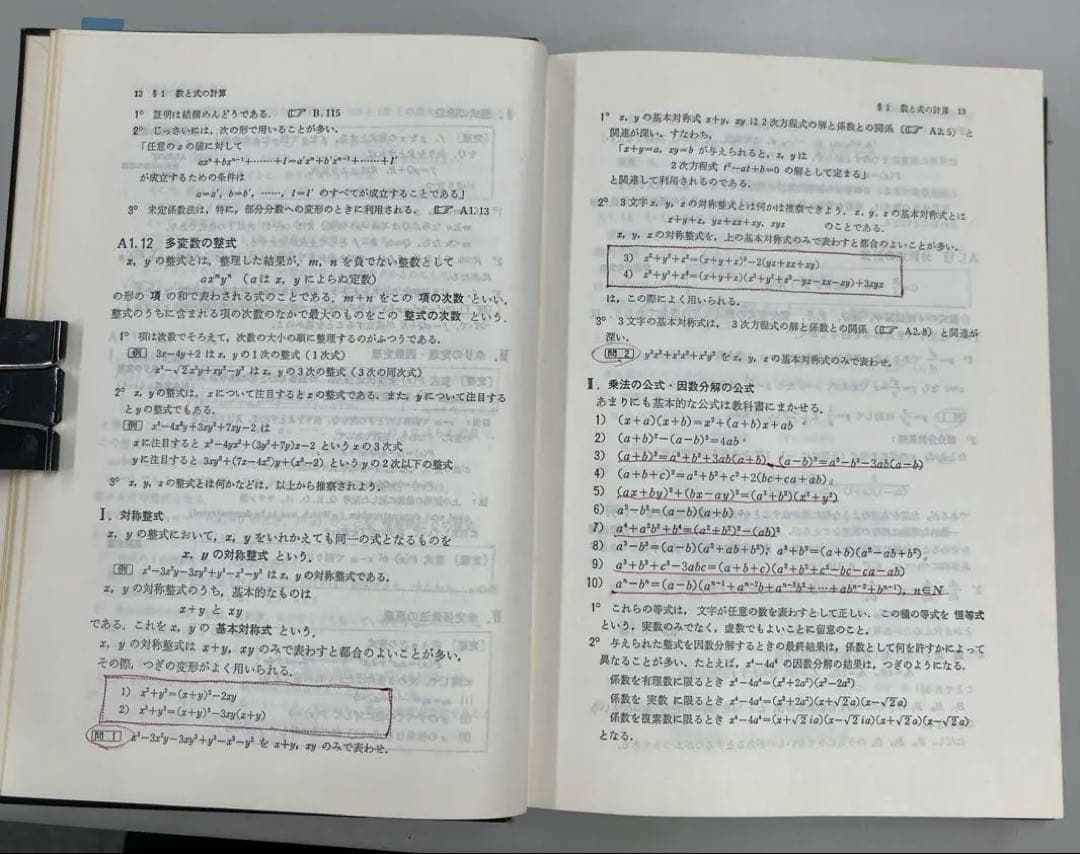 12 §1 数と式の計算
1° 証明は結構めんどうである. (☞ B.115
2° じっさいには,次の形で用いることが多い.
「任意の x の値に対して
axⁿ+bxⁿ⁻¹+……+l=a′xⁿ+b′xⁿ⁻¹+……+l′
が成立するための条件は
a=a′, b=b′, ……, l=l′ のすべてが成立することである」
3° 未定係数法は,特に,部分分数への変形のときに利用される. ☞ A1.13
A1.12 多変数の整式
x, y の整式とは,整理した結果が,m, n を負でない整数として
axᵐyⁿ (a は x, y によらぬ定数)
の形の 項 の和で表わされる式のことである.m+n をこの 項の次数 といい,
整式のうちに含まれる項の次数のなかで最大のものをこの 整式の次数 という.
1° 項は次数でそろえて,次数の大小の順に整理するのがふつうである.
例 3x-4y+2 は x, y の1次の整式(1次式)
x³-√2x²y+xy²-y³ は x, y の3次の整式(3次の同次式)
2° x, y の整式は,x について注目すると x の整式である.また,y について注目する
と y の整式でもある.
例 x³-4x²y+3xy²+7xy-2 は
x に注目すると x³-4yx²+(3y²+7y)x-2 という x の3次式
y に注目すると 3xy²+(7x-4x²)y+(x³-2) という y の2次以下の整式
3° x, y, z の整式とは何かなどは,以上から推察されよう.
I. 対称整式
x, y の整式において,x, y をいれかえても同一の式となるものを
x, y の対称整式 という.
例 x³-3x²y-3xy²+y³-x²-y² は x, y の対称整式である.
x, y の対称整式のうち,基本的なものは
x+y と xy
である.これを x, y の 基本対称式 という.
x, y の対称整式は x+y, xy のみで表わすと都合のよいことが多い.
その際,つぎの変形がよく用いられる.
1) x²+y²=(x+y)²-2xy
2) x³+y³=(x+y)³-3xy(x+y)
問1 x³-3x²y-3xy²+y³-x²-y² を x+y, xy のみで表わせ.
§1 数と式の計算 13
1° x, y の基本対称式 x+y, xy は2次方程式の解と係数との関係(☞ A2.5)と
関連が深い.すなわち,
「x+y=a, xy=b が与えられると,x, y は
2次方程式 t²-at+b=0 の解として定まる」
と関連して利用されるのである.
2° 3文字 x, y, z の対称整式とは何かは推察できよう.x, y, z の基本対称式とは
x+y+z, yz+zx+xy, xyz のことである.
x, y, z の対称整式を,上の基本対称式のみで表わすと都合のよいことが多い.
3) x²+y²+z²=(x+y+z)²-2(yz+zx+xy)
4) x³+y³+z³=(x+y+z)(x²+y²+z²-yz-zx-xy)+3xyz
は,この際によく用いられる.
3° 3文字の基本対称式は,3次方程式の解と係数との関係(☞ A2.8)と関連が
深い.
問2 y²z²+z²x²+x²y² を x, y, z の基本対称式のみで表わせ.
II. 乗法の公式・因数分解の公式
あまりにも基本的な公式は教科書にまかせる.
1) (x+a)(x+b)=x²+(a+b)x+ab
2) (a+b)²-(a-b)²=4ab
3) (a+b)³=a³+b³+3ab(a+b), (a-b)³=a³-b³-3ab(a-b)
4) (a+b+c)²=a²+b²+c²+2(bc+ca+ab)
5) (ax+by)²+(bx-ay)²=(a²+b²)(x²+y²)
6) a²-b²=(a-b)(a+b)
7) a⁴+a²b²+b⁴=(a²+b²)²-(ab)²
8) a³-b³=(a-b)(a²+ab+b²), a³+b³=(a+b)(a²-ab+b²)
9) a³+b³+c³-3abc=(a+b+c)(a²+b²+c²-bc-ca-ab)
10) aⁿ-bⁿ=(a-b)(aⁿ⁻¹+aⁿ⁻²b+aⁿ⁻³b²+⋯+abⁿ⁻²+bⁿ⁻¹), n∈N
1° これらの等式は,文字が任意の数を表わすとして正しい.この種の等式を 恒等式
という.実数のみでなく,虚数でもよいことに留意のこと.
2° 与えられた整式を因数分解するときの最終結果は,係数として何を許すかによって
異なることが多い.たとえば,x⁴-4a⁴ の因数分解の結果は,つぎのようになる.
係数を有理数に限るとき x⁴-4a⁴=(x²+2a²)(x²-2a²)
係数を 実数 に限るとき x⁴-4a⁴=(x²+2a²)(x+√2a)(x-√2a)
係数を複素数に限るとき x⁴-4a⁴=(x+√2ia)(x-√2ia)(x+√2a)(x-√2a)
となる.